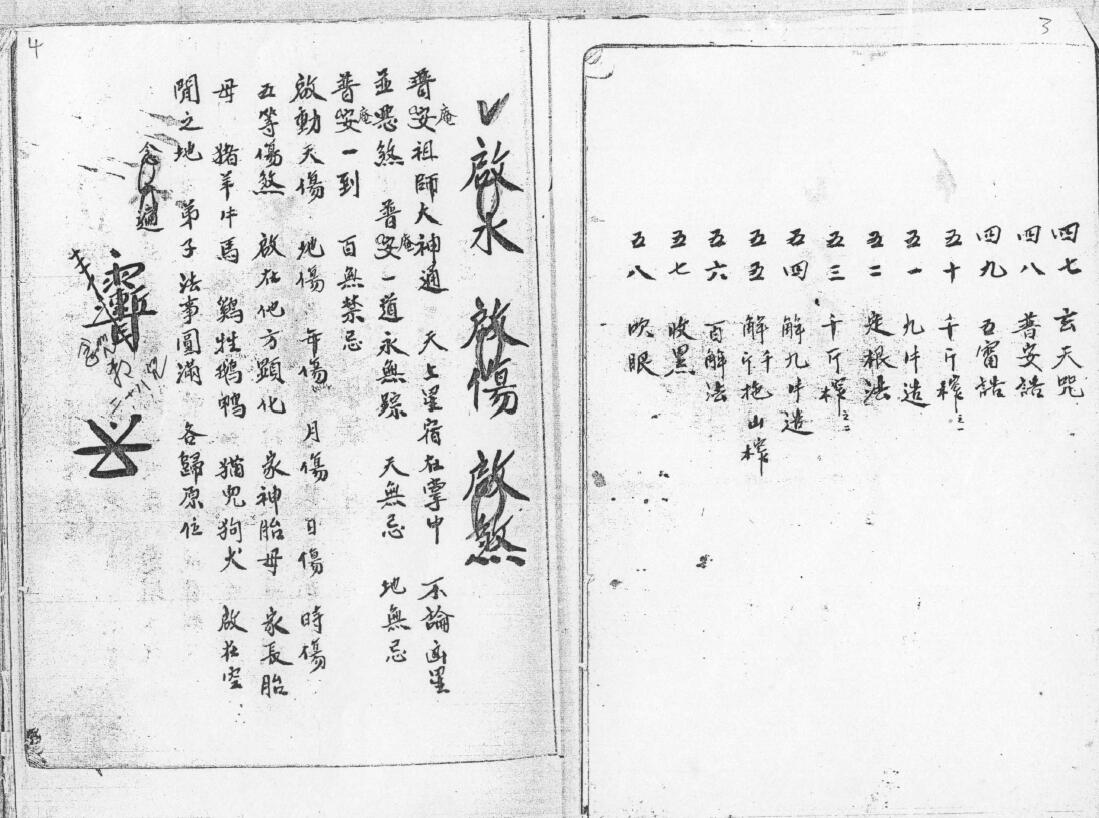 3
四七 玄天咒
四八 普安誥
四九 五雷誥
五十 千斤榨之一
五一 九牛造
五二 定根法
五三 千斤榨之二
五四 解九牛造
五五 解千斤拖山榨
五六 百解法
五七 收黑
五八 吹眼
4
啟水 啟傷 啟煞
普安庵祖師大神通 天上星宿在掌中 不論凶星
並惡煞 普安庵一道永無踪 天無忌 地無忌
普安庵一到 百無禁忌
啟動天傷 地傷 年傷 月傷 日傷 時傷
五等傷煞 啟在他方顯化 家神胎母 家長胎
母 猪羊牛馬 鷄牲鵝鴨 猫児狗犬 啟在空
間之地 弟子法事圓滿 各歸原位
念 遍